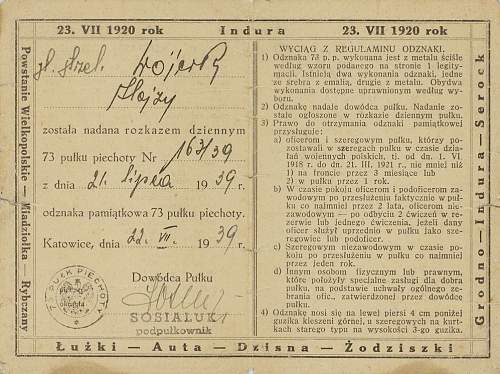 23. VII 1920 rok Indura 23. VII 1920 rok
Powstanie Wielkopolskie — Miadziołka — Rybczany
gł. strzel.
Alojzy
została nadana rozkazem dziennym
73 pułku piechoty Nr 163/39
z dnia 21. lipca 1939 r.
odznaka pamiątkowa 73 pułku piechoty.
Katowice, dnia 22. VII. 1939 r.
Dowódca Pułku
SOSIALUK
podpułkownik
73 PUŁK PIECHOTY
WYCIĄG Z REGULAMINU ODZNAKI.
1) Odznaka 73 p. p. wykonana jest z metalu ściśle
według wzoru podanego na stronie 1 legity-
macji. Istnieją dwa wykonania odznaki, jedne
ze srebra z emalią, drugie z metalu. Obydwa
wykonania dostępne uprawnionym według wy-
boru.
2) Odznakę nadaje dowódca pułku. Nadanie zo-
stałe ogłoszone w rozkazie dziennym pułku.
3) Prawo do otrzymania odznaki pamiątkowej
przysługuje:
a) oficerom i szeregowym pułku, którzy po-
zostawali w szeregach pułku w czasie dzia-
łań wojennych polskich, tj. od dn. 1. VI.
1918 r. do dn. 21. III. 1921 r., nie mniej niż
1) na froncie przez 3 miesiące lub
2) w pułku przez 1 rok.
b) W czasie pokoju oficerom i podoficerom za-
wodowym po przesłużeniu faktycznie w puł-
ku co najmniej przez 2 lata, oficerom nie-
zawodowym — po odbyciu 2 ćwiczeń w re-
zerwie lub jednego ćwiczenia, jeżeli dany
oficer służył uprzednio w pułku jako sze-
regowiec lub podoficer.
c) Szeregowym niezawodowym w czasie po-
koju po przesłużeniu w pułku co najmniej
przez jeden rok.
d) Innym osobom fizycznym lub prawnym,
które położyły specjalne zasługi dla dobra
pułku, na podstawie uchwały ogólnego ze-
brania ofic., zatwierdzonej przez dowódcę
pułku.
4) Odznakę nosi się na lewej piersi 4 cm poniżej
guzika kieszeni górnej, u szeregowych na kurt-
kach starego typu na wysokości 3-go guzika.
Grodno—Indura—Serock
Łużki — Auta — Dzisna — Żodziszki